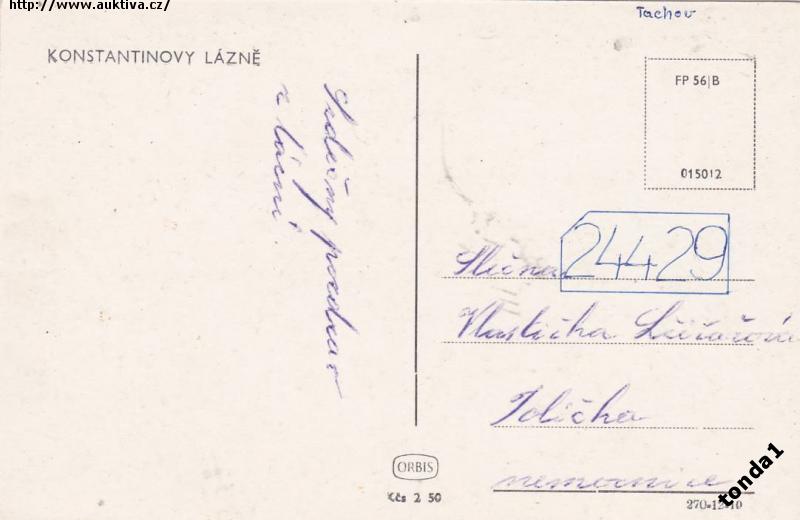 http://www.auktiva.cz/
Tachov
KONSTANTINOVY LÁZNĚ
FP 56|B
015012
Srdečný pozdrav
z lázní
24429
Slečna
Vlastička
Idička
nemocnice
ORBIS
Kčs 2 50
270-12-10
tonda1